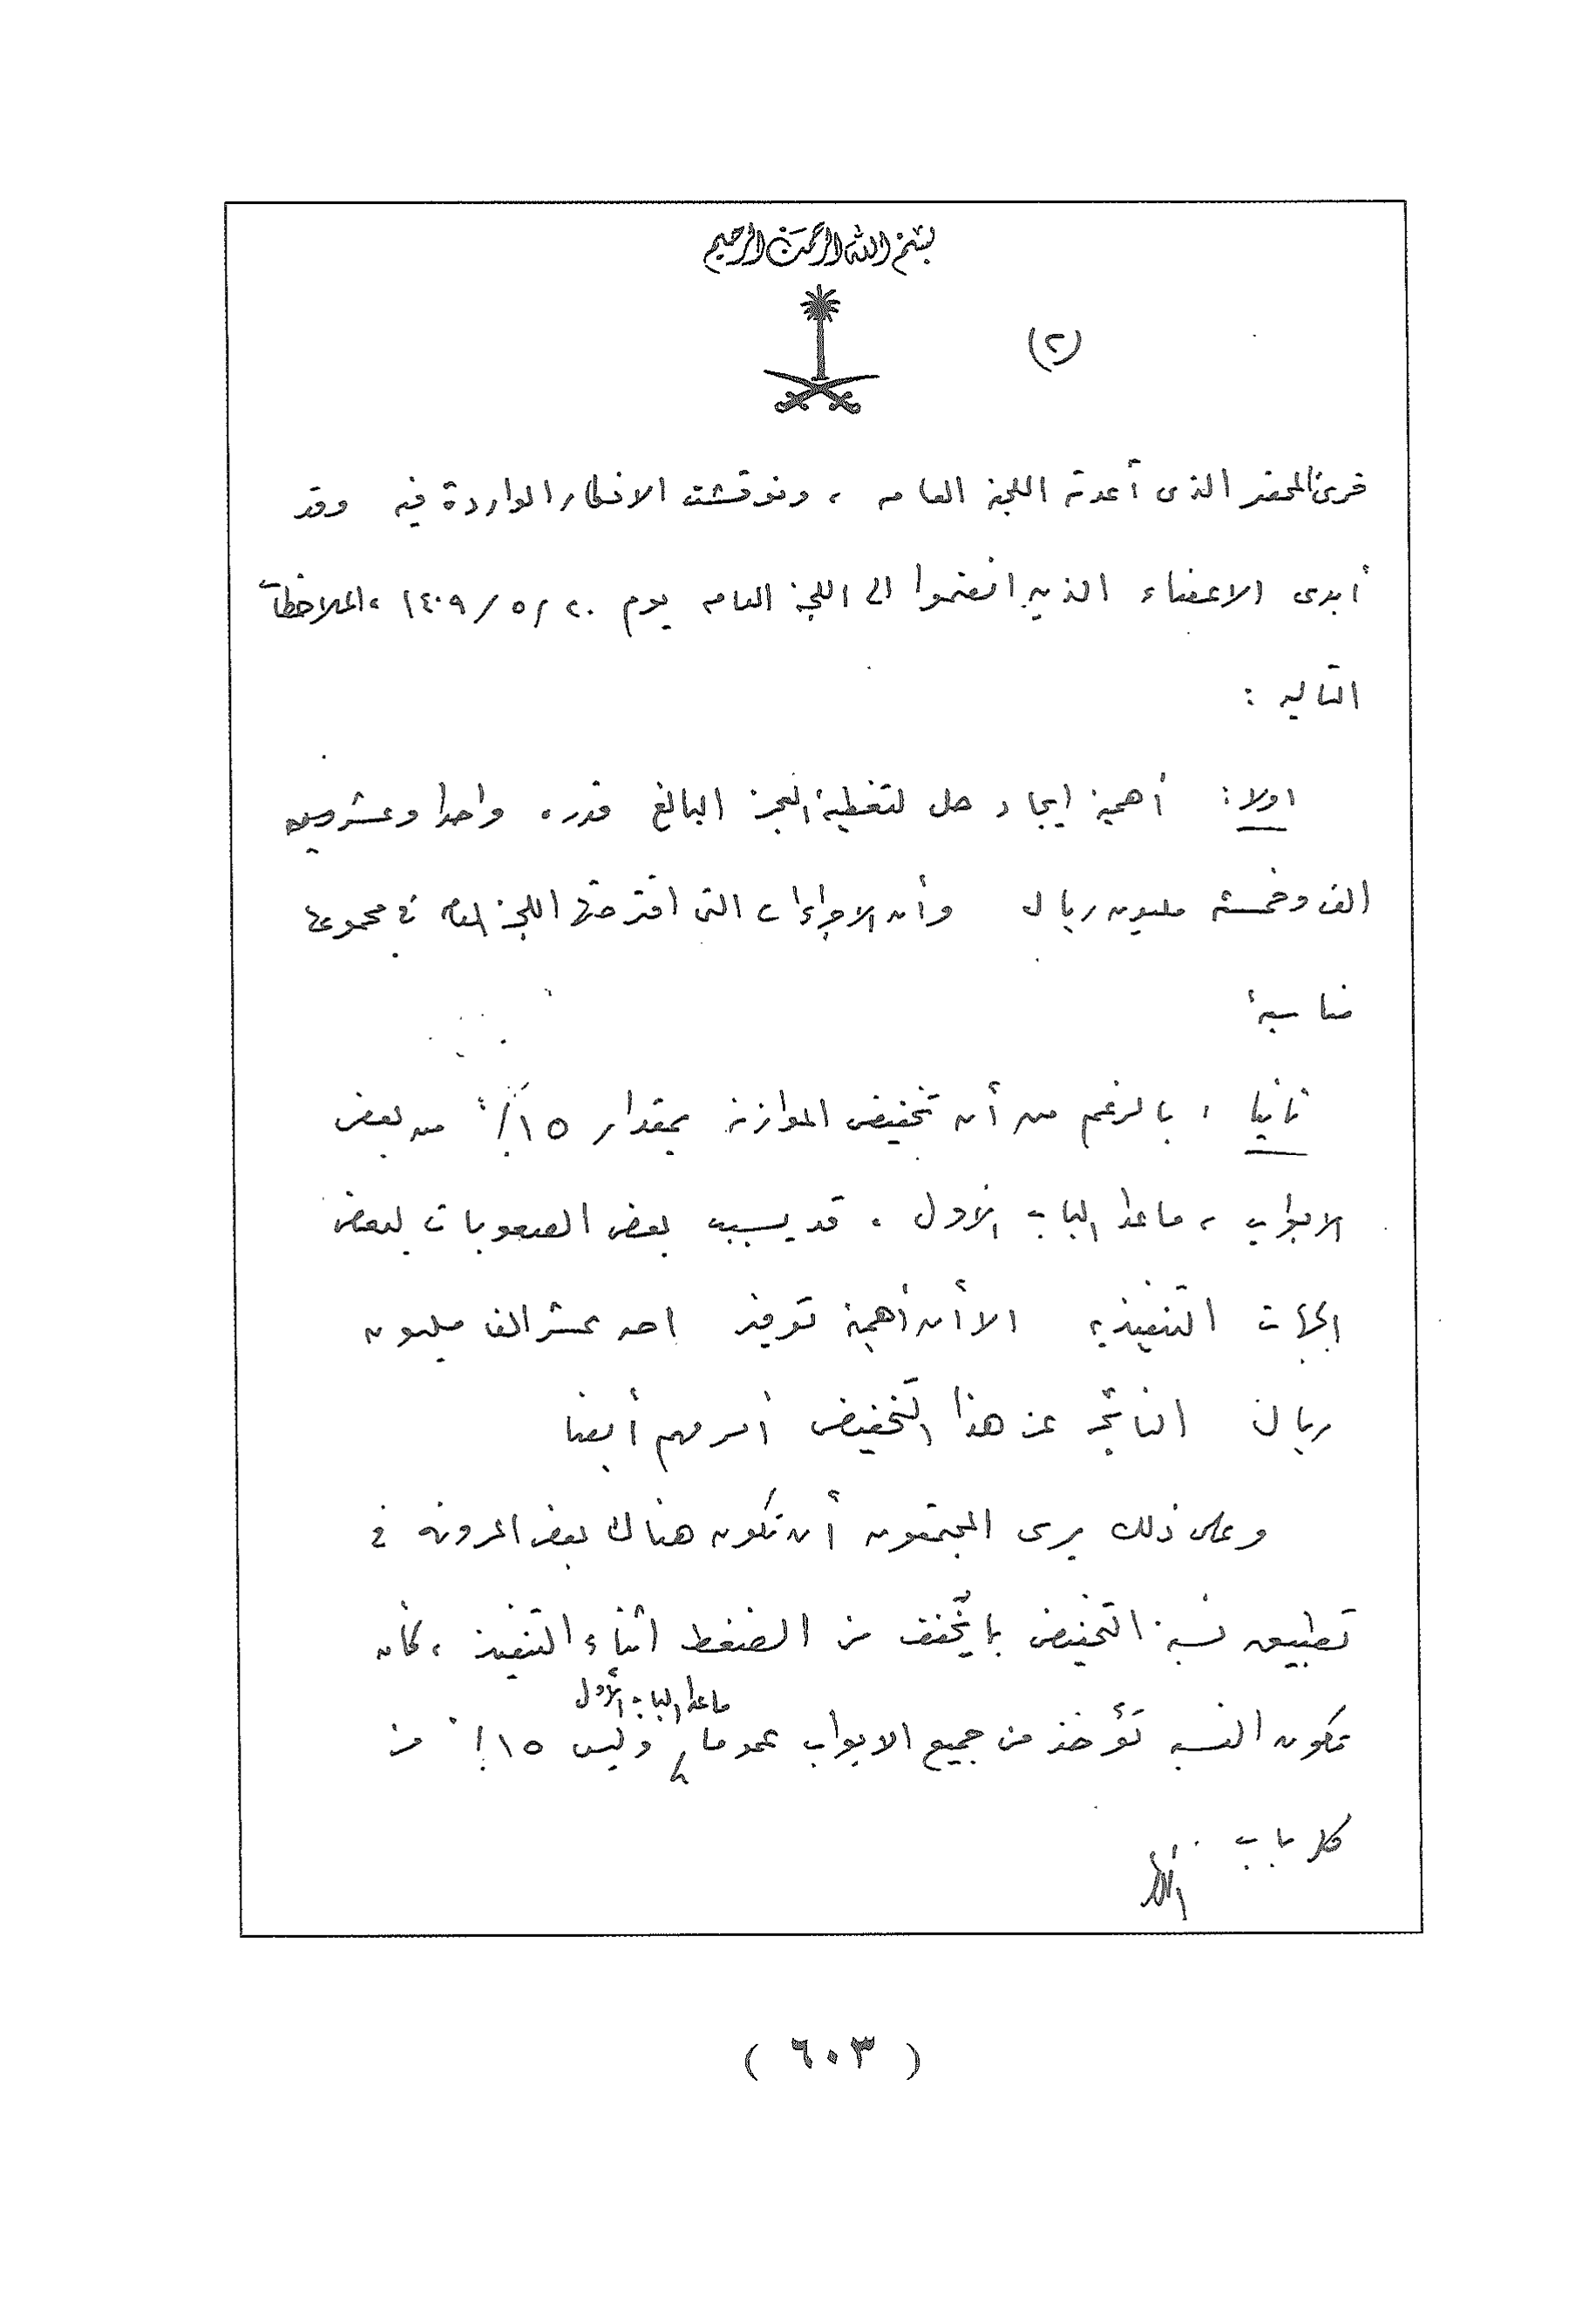 بسم الله الرحمن الرحيم
(٢)
قرئ المحضر الذى أعدته اللجنة العامه ، ونوقشت الافكار الواردة فيه وقد
أبدى الاعضاء الذين انضموا الى اللجنة العامه يوم ١٤٠٩/٥/٢٠ ، الملاحظات
التاليه :
اولا : أهمية ايجاد حل لتغطية العجز البالغ قدره واحدا وعشرون
الف وخمسة مليون ريال وأن الاجراءات التى اقترحتها اللجنة العامة في مجموعها
مناسبة
ثانيا : بالرغم من أن تخفيض الموازنة بمقدار ١٥٪ من بعض
الابواب ، ماعدا الباب الأول . قد يسبب بعض الصعوبات لبعض
الجهات التنفيذيه الا أن أهمية توفير احد عشر الف مليون
ريال الناتج عن هذا التخفيض أمر مهم أيضا
وعلى ذلك يرى المجتمعون أن تكون هناك بعض المرونه في
تطبيق نسبة التخفيض بما يخفف من الضغط اثناء التنفيذ ، كأن
تكون النسبه تؤخذ من جميع الابواب عموما ماعدا الباب الأول وليس ١٥٪ من
كل باب .
( ٦٠٣ )